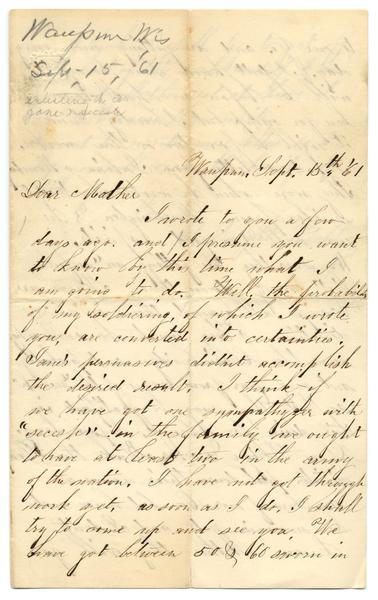 Waupun Wis
Sept - 15, '61
enlisting in a
Waupun, Sept. 15th /61
Dear Mother
I wrote to you a few
days ago. and I presume you want
to know by this time what I
am going to do. Well, the probabilities
of my soldiering, of which I wrote
you, are converted into certainties.
Jane's persuasives didn't accomplish
the desired result. I think if
we have got one sympathyzer with
"secesher" in the family we ought
to have at least two in the army
of the nation. I have not got through
work yet, as soon as I do, I shall
try to come up and see you. We
have got between 50 & 60 sworn in